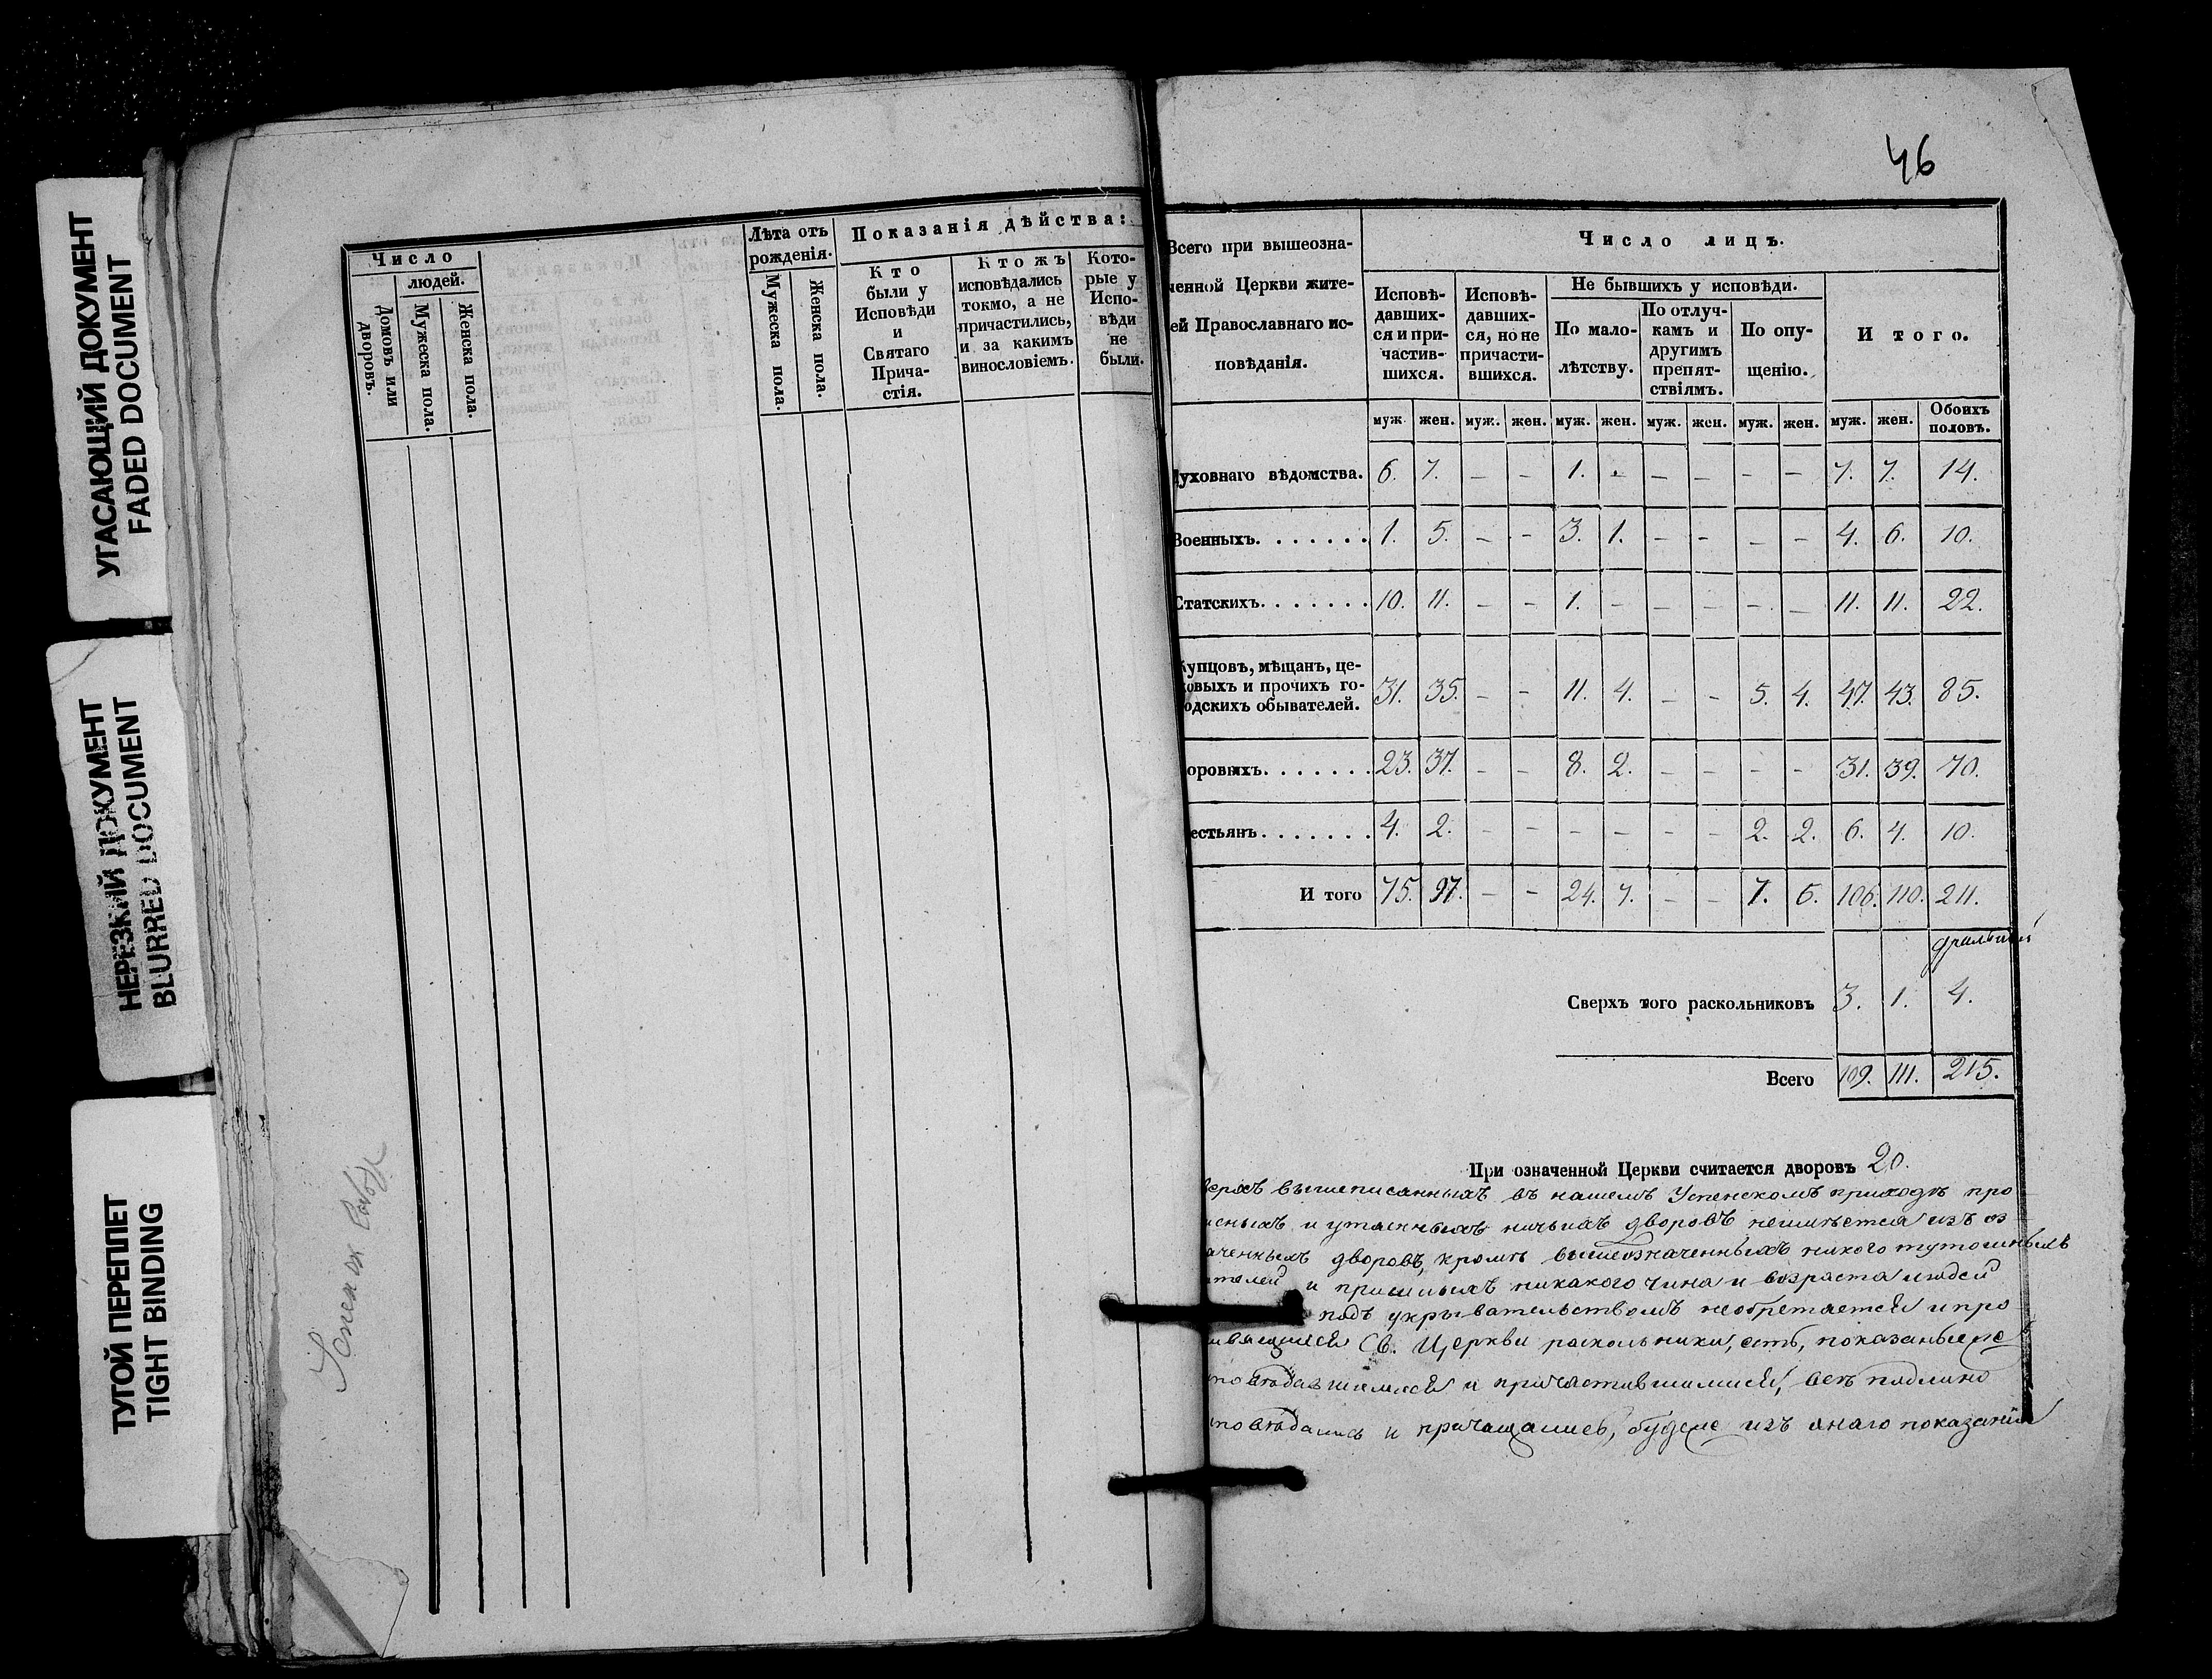 УГАСАЮЩИЙ ДОКУМЕНТ
FADED DOCUMENT
НЕРЕЗКИЙ ДОКУМЕНТ
BLURRED DOCUMENT
ТУГОЙ ПЕРЕПЛЕТ
TIGHT BINDING
Число
людей.
Домовъ или дворовъ.
Мужеска пола.
Женска пола.
Лѣта отъ рожденія.
Мужеска пола.
Женска пола.
Показанія дѣйства:
Кто были у Исповѣди и Святаго Прича-стія.
Ктожъ исповѣдались токмо, а не причастились, и за какимъ винословіемъ.
Кото-рые у Испо-вѣди не были.
46
Всего при вышеозна-
ченной Церкви жите-
ей Православнаго ис-
повѣданія.
Число лицъ.
Исповѣ-давших-ся и при-частив-шихся.
Исповѣ-давших-ся, но не причасти-вшихся.
Не бывшихъ у исповѣди.
По мало-лѣтству.
По отлуч-камъ и другимъ препят-ствіямъ.
По опу-щенію.
Итого.
муж. жен. муж. жен. муж. жен. муж. жен. муж. жен. муж. жен. Обоихъ половъ.
уховнаго вѣдомства. 6. 7. – – 1. - – – – – 7. 7. 14.
Военныхъ. . . . . . . 1. 5. – – 3. 1. – – – – 4. 6. 10.
Статскихъ. . . . . . . 10. 11. – – 1. – – – – – 11. 11. 22.
Купцовъ, мѣщанъ, це-
ховыхъ и прочихъ го-
одскихъ обывателей. 31. 35. – – 11. 4. – – 5. 4. 47. 43. 85.
оровыхъ. . . . . . . 23. 37. – – 8. 2. – – – – 31. 39. 70.
естьянъ. . . . . . . 4. 2. – – – – – – 2. 2. 6. 4. 10.
И того 75. 97. – – 24. 7. – – 7. 6. 106. 110. 211.
Сверхъ того раскольниковъ 3. 1. 4.
Всего 109. 111. 215.
При означенной Церкви считается дворовъ 20.
верхъ вышеписанныхъ въ нашемъ Успенскомъ приходѣ про
исныхъ и утаенныхъ ничьихъ дворовъ неимѣется изъ оз
аченныхъ дворовъ, кромѣ вышеозначенныхъ никого тутошныхъ
ителей и пришлыхъ никакого чина и возраста людей
подъ укрывательствомъ необретается и про
ивящіеся Св. Церкви раскольники, есть, показанные
повѣдавшимися и причастившимися, всѣ подлинно
повѣдались и причащались, будеже изъ онаго показанія